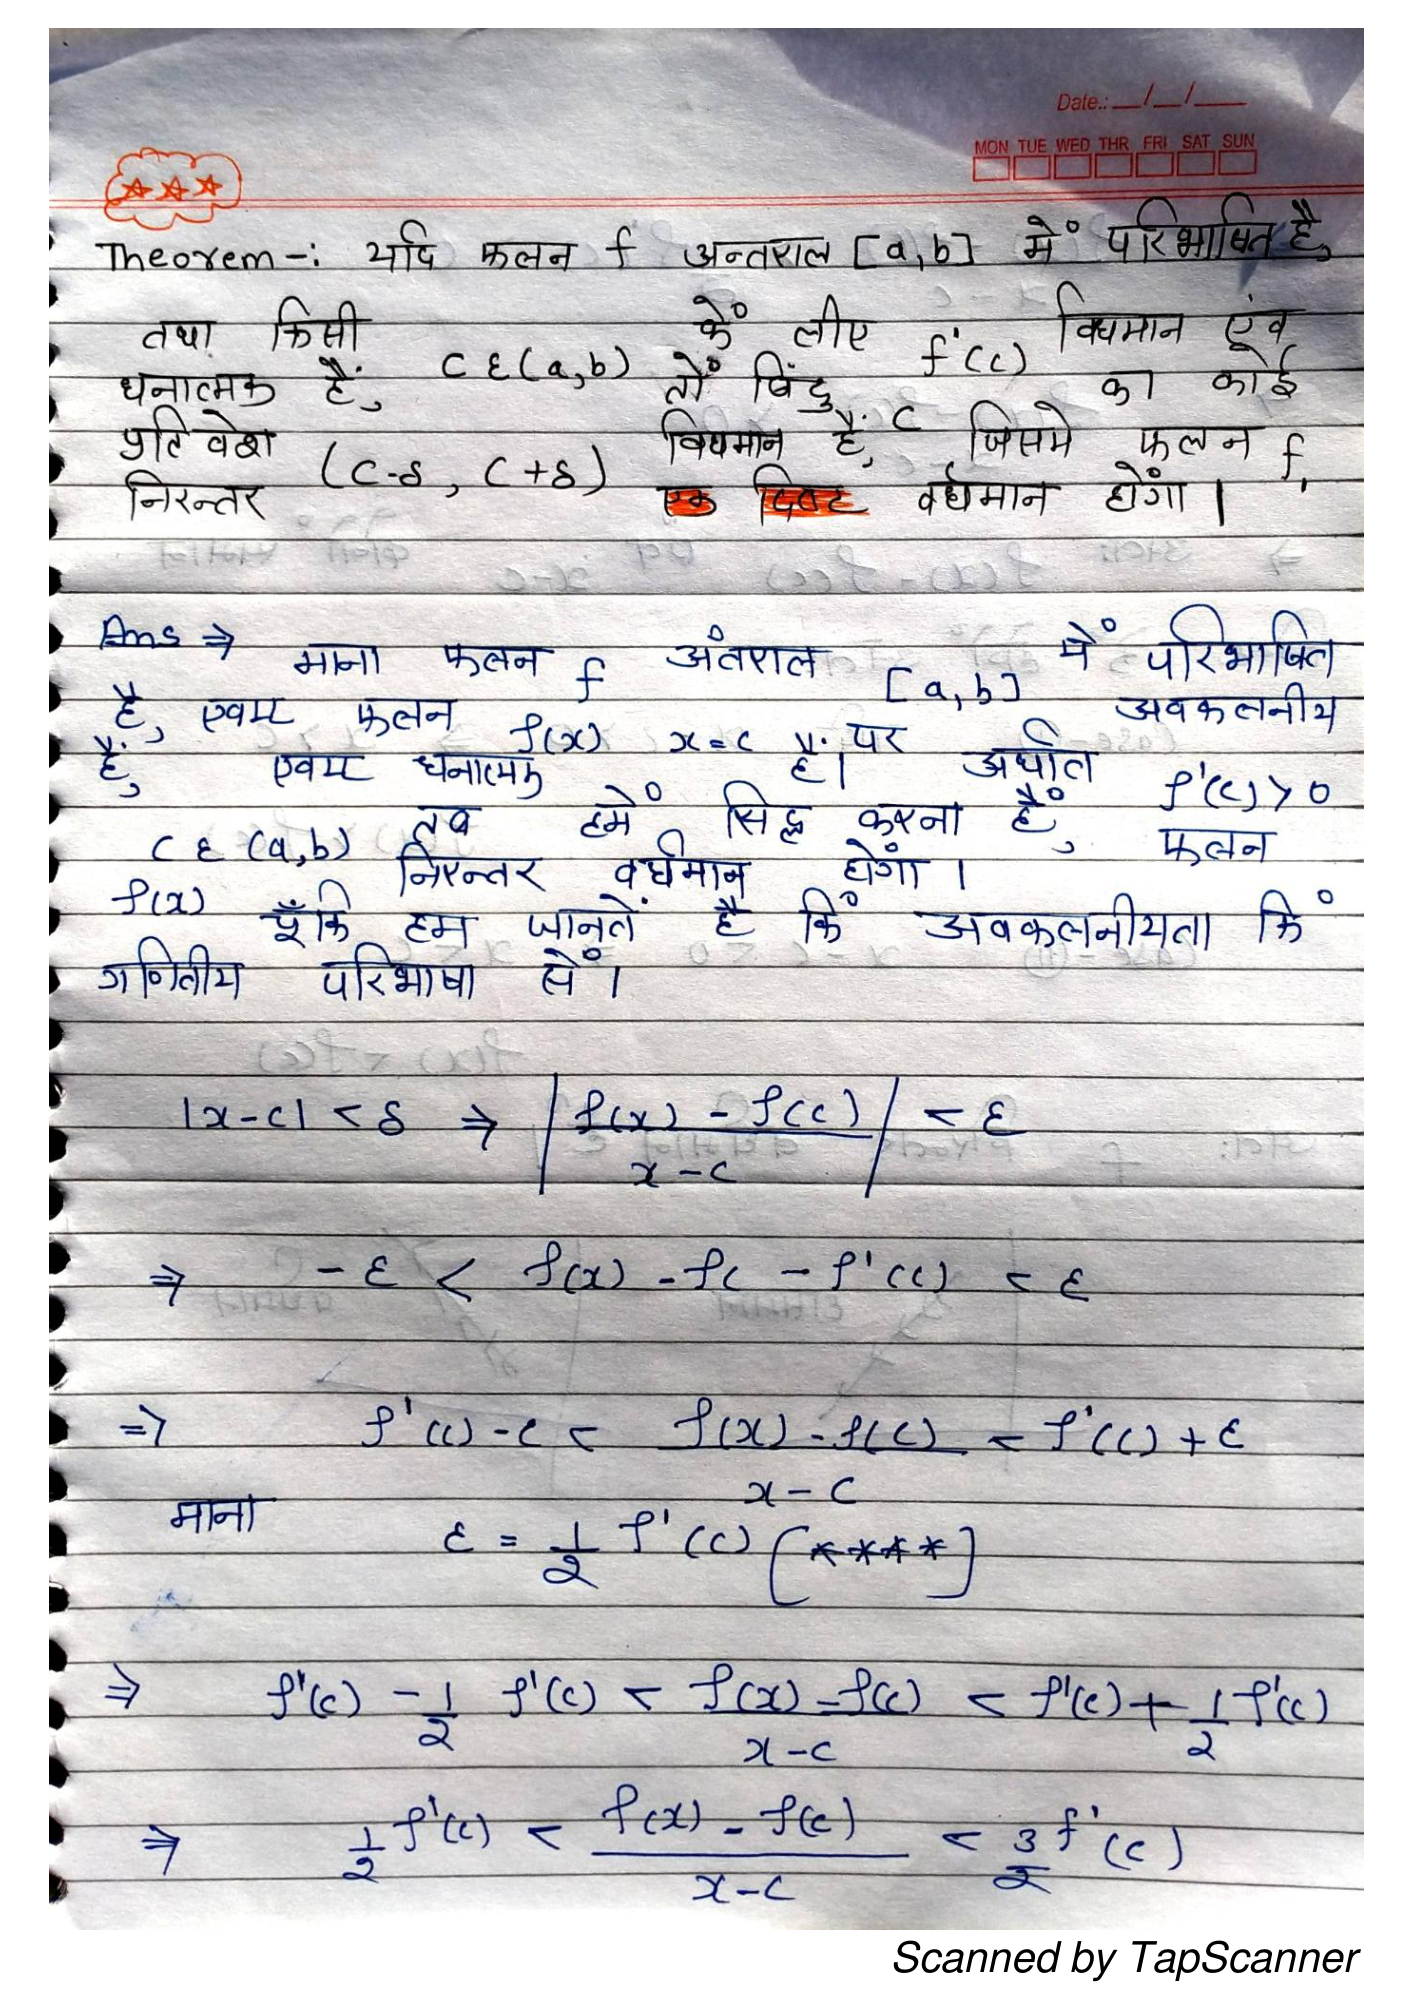 Date.: __/__/___
MON TUE WED THR FRI SAT SUN
Theorem -: यदि फलन f अन्तराल [a,b] में परिभाषित है,
तथा किसी C ε (a,b) कें लीए f'(c) विधमान एंव
धनात्मक हैं, तों बिंदु c का कोई
प्रतिवेश (C-δ, C+δ) विधमान हैं, जिसमे फलन f,
निरन्तर वर्धमान होगा।
Ans ⇒ माना फलन f अंतराल [a,b] में परिभाषित
है, एवम फलन f(x) x=c पर अवकलनीय
हैं, एवम धनात्मक हैं। अर्थात f'(c) > 0
C ε (a,b) तब हमें सिद्ध करना हैं, फलन
f(x) निरन्तर वर्धमान होगा।
चूँकि हम जानतें है किं अवकलनीयता किं
गणितीय परिभाषा सें।
|x-c| < δ ⇒ | f(x) - f(c) / x-c | < ε
⇒ -ε < f(x) - fc - f'(c) < ε
⇒ f'(c) - ε < f(x) - f(c) / x-c < f'(c) + ε
माना ε = 1/2 f'(c) [****]
⇒ f'(c) - 1/2 f'(c) < f(x) - f(c) / x-c < f'(c) + 1/2 f'(c)
⇒ 1/2 f'(c) < f(x) - f(c) / x-c < 3/2 f'(c)
Scanned by TapScanner